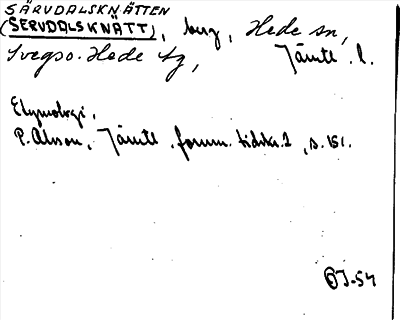 SÄRVDALSKNÄTTEN
(SERVDALSKNÄTT), berg, Hede sn,
Svegso. Hede tg, Jämtl. l.
Etymologi,
P. Olsson, Jämtl. fornm. tidskr. 2, s. 151.
OJ-54